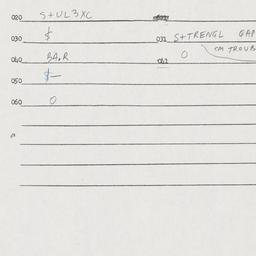 020 S+UL3XC
030 $
040 BA,R
050 $-
060 0
031 S+TRENGL GAP
CM TROUB
042 0